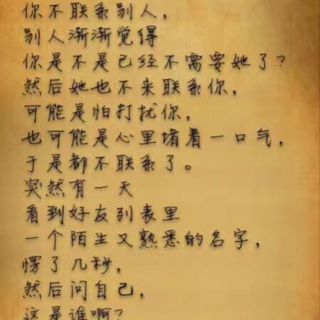 你不联系别人，
别人渐渐觉得
你是不是已经不需要她了？
然后她也不来联系你，
可能是怕打扰你，
也可能是心里堵着一口气，
于是都不联系了。
突然有一天
看到好友列表里
一个陌生又熟悉的名字，
愣了几秒，
然后问自己，
这是谁啊？